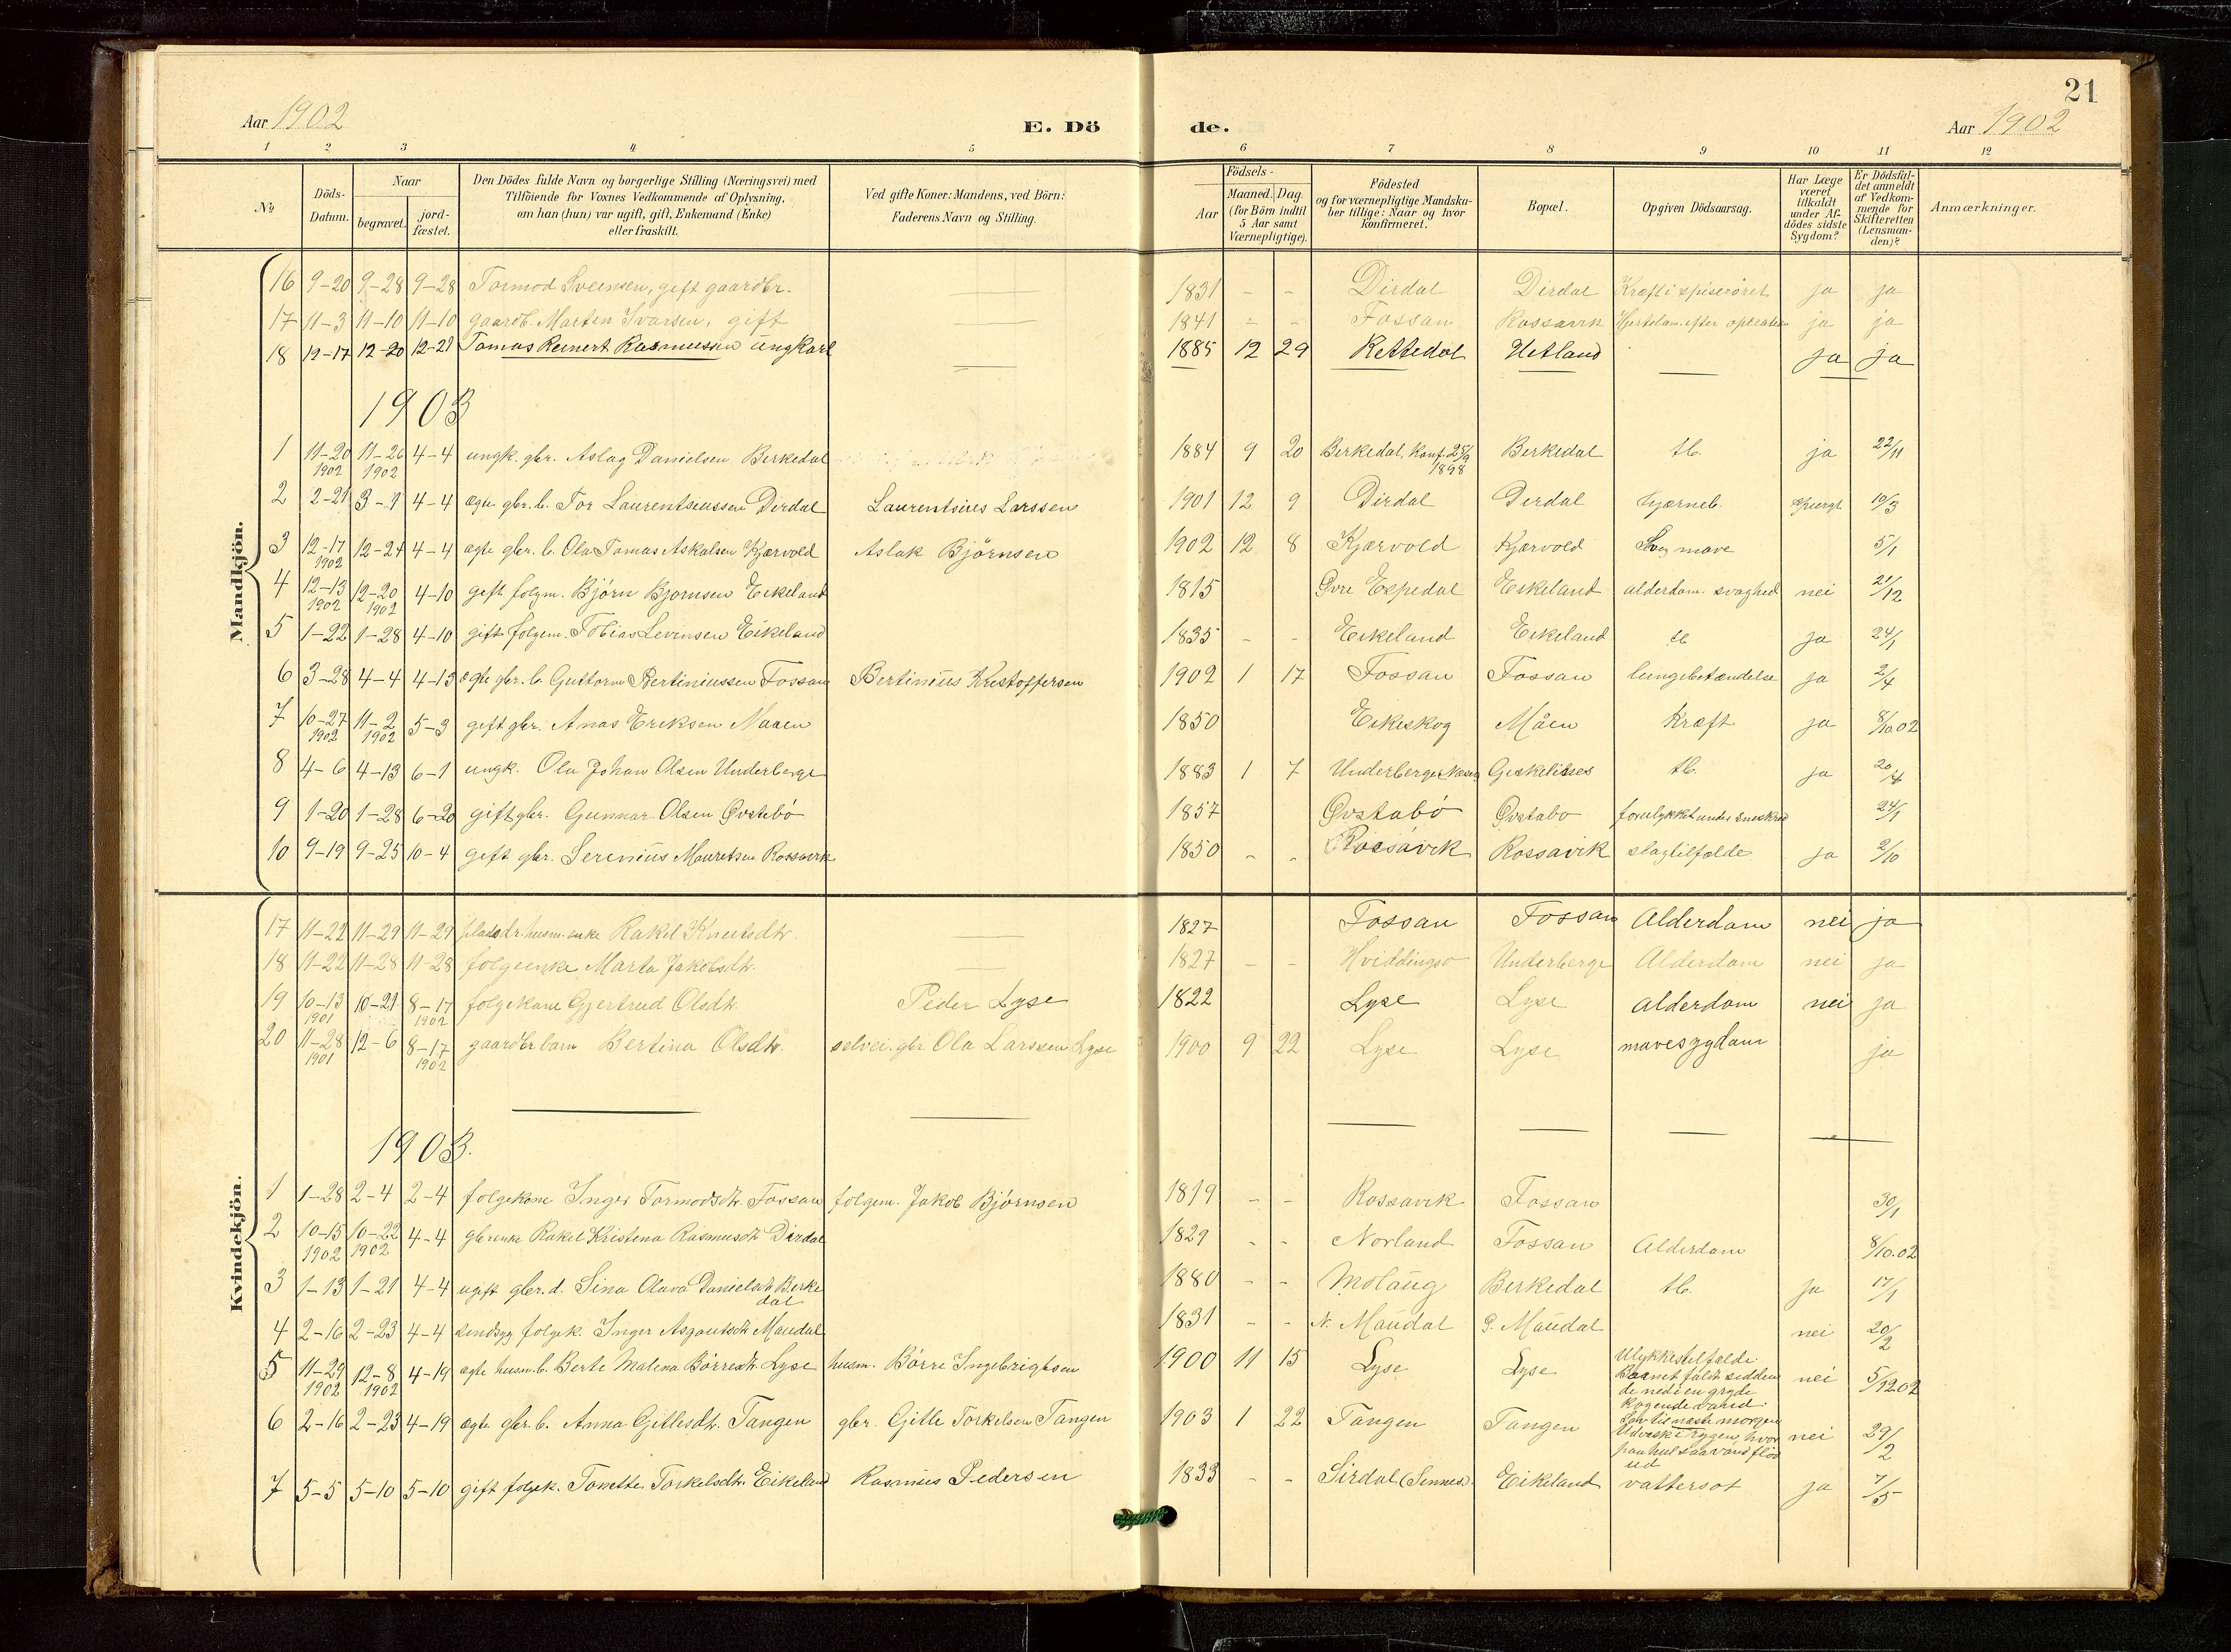 21
Aar 1902 E. Dö de. Aar 1902
1 2 3 4 5 6 7 8 9 10 11 12
№ Döds-Datum. Naar begravet. jord-fæstet. Den Dödes fulde Navn og borgerlige Stilling (Næringsvei) med Tilföiende for Voxnes Vedkommende af Oplysning, om han (hun) var ugift, gift, Enkemand (Enke) eller fraskilt. Ved gifte Koner: Mandens, ved Börn: Faderens Navn og Stilling. Födsels- Aar Maaned. Dag. (for Börn indtil 5 Aar samt Værnepligtige). Födested og for værnepligtige Mandskaber tillige: Naar og hvor konfirmeret. Bopæl. Opgiven Dödsaarsag. Har Læge været tilkaldt under Afdödes sidste Sygdom? Er Dödsfaldet anmeldt af Vedkommende for Skifteretten (Lensmanden)? Anmærkninger.
Mandkjön.
16 9-20 9-28 9-28 Tormod Sveinsen, gift gaardbr. — 1831 - - Dirdal Dirdal Kræft i spiserøret ja ja
17 11-3 11-10 11-10 gaardb. Marten Ivarsen, gift — 1841 - - Fossan Rossavik Hjertelam. efter operation ja ja
18 12-17 12-20 12-21 Tomas Reinert Rasmussen ungkarl — 1885 12 29 Kettedal Hetland — ja ja
1903
1 11-20 1902 11-26 1902 4-4 ungk. gbr. Aslag Danielsen Berkedal 1884 9 20 Berkedal, Konf. 25/9 1898 Berkedal tb. ja 22/11
2 2-21 3-1 4-4 ægte gbr. b. Tor Laurentsiussen Dirdal Laurentsius Larssen 1901 12 9 Dirdal Dirdal hjerneb. spurgt 10/3
3 12-17 1902 12-24 4-4 ægte gbr. b. Ola Tomas Askalsen Kjærvold Aslak Björnsen 1902 12 8 Kjærvold Kjærvold Svag mave 5/1
4 12-13 1902 12-20 1902 4-10 gift folgm. Björn Bjornsen Eikeland 1815 Øvre Espedal Eikeland alderdom. svaghed nei 21/12
5 1-22 1-28 4-10 gift folgem. Tobias Levinsen Eikeland 1835 - - Eikeland Eikeland tb ja 24/1
6 3-28 4-4 4-13 ægte gbr. b. Guttorm Bertiniussen Fossan Bertinius Kristoffersen 1902 1 17 Fossan Fossan lungebetændelse ja 2/4
7 10-27 1902 11-2 1902 5-3 gift gbr. Anas Eriksen Maaen 1850 Eikeskog Måen Kræft ja 8/10.02
8 4-6 4-13 6-1 ungk. Ola Johan Olsen Underberge 1883 1 7 Underberge Geskelienes tb. ja 20/4
9 1-20 1-28 6-20 gift gbr. Gunnar Olsen Øvstebö 1857 Øvstabö Øvstabo forulykket under sneskred 24/1
10 9-19 9-25 10-4 gift gbr. Serenius Mauretsen Rossavik 1850 - - Rossavik Rossavik slagtilfælde ja 2/10
Kvindekjön.
17 11-22 11-29 11-29 husm. enke Rakel Knutsdtr. — 1827 Fossan Fossan Alderdom nei ja
18 11-22 11-28 11-28 folgeenke Marta Jakobsdtr. — 1827 - - Hviddingsø Underberge Alderdom nei ja
19 10-13 1901 10-21 8-17 1902 folgekone Gjertrud Olsdtr. Peder Lyse 1822 Lyse Lyse Alderdom nei ja
20 11-28 1901 12-6 8-17 1902 gaardbr barn Bertina Olsdtr. selvei. gbr Ola Larssen Lyse 1900 9 22 Lyse Lyse mavesygdom ja
1903.
1 1-28 2-4 2-4 folgekone Inger Tormodsdtr. Fossan folgem. Jakob Björnsen 1819 - - Rossavik Fossan 30/1
2 10-15 1902 10-22 1902 4-4 gbrenke Rakel Kristena Rasmusdtr Dirdal 1829 - - Norland Fossan Alderdom 8/10.02
3 1-13 1-21 4-4 ugift gbr. d. Sina Olava Danielsdtr Berkedal 1880 - - Molaug Berkedal tb. ja 17/1
4 2-16 2-23 4-4 sindsyg folgek. Inger Asgautsdtr Maudal 1831 - - N. Maudal Ö. Maudal nei 20/2
5 11-29 1902 12-8 1902 4-19 ægte husm. b. Berte Malena Börresdtr. Lyse husm. Börre Ingebrigtsen 1900 11 15 Lyse Lyse Ulykkestilfælde. Barnet faldt siddende ned i en gryde kogende vand. Lev til næste morgen nei 5/12.02
6 2-16 2-23 4-19 ægte gbr. b. Anna Gitlesdtr. Tangen gbr. Gitle Torkelsen Tangen 1903 1 22 Tangen Tangen Udvæskt i rygen, hvor paa hul saa vand flöd ud nei 29/2
7 5-5 5-10 5-10 gift folgek. Tonette Torkelsdtr. Eikeland Rasmus Pedersen 1833 - - Sirdal (Sinnes). Eikeland vattersot ja 7/5